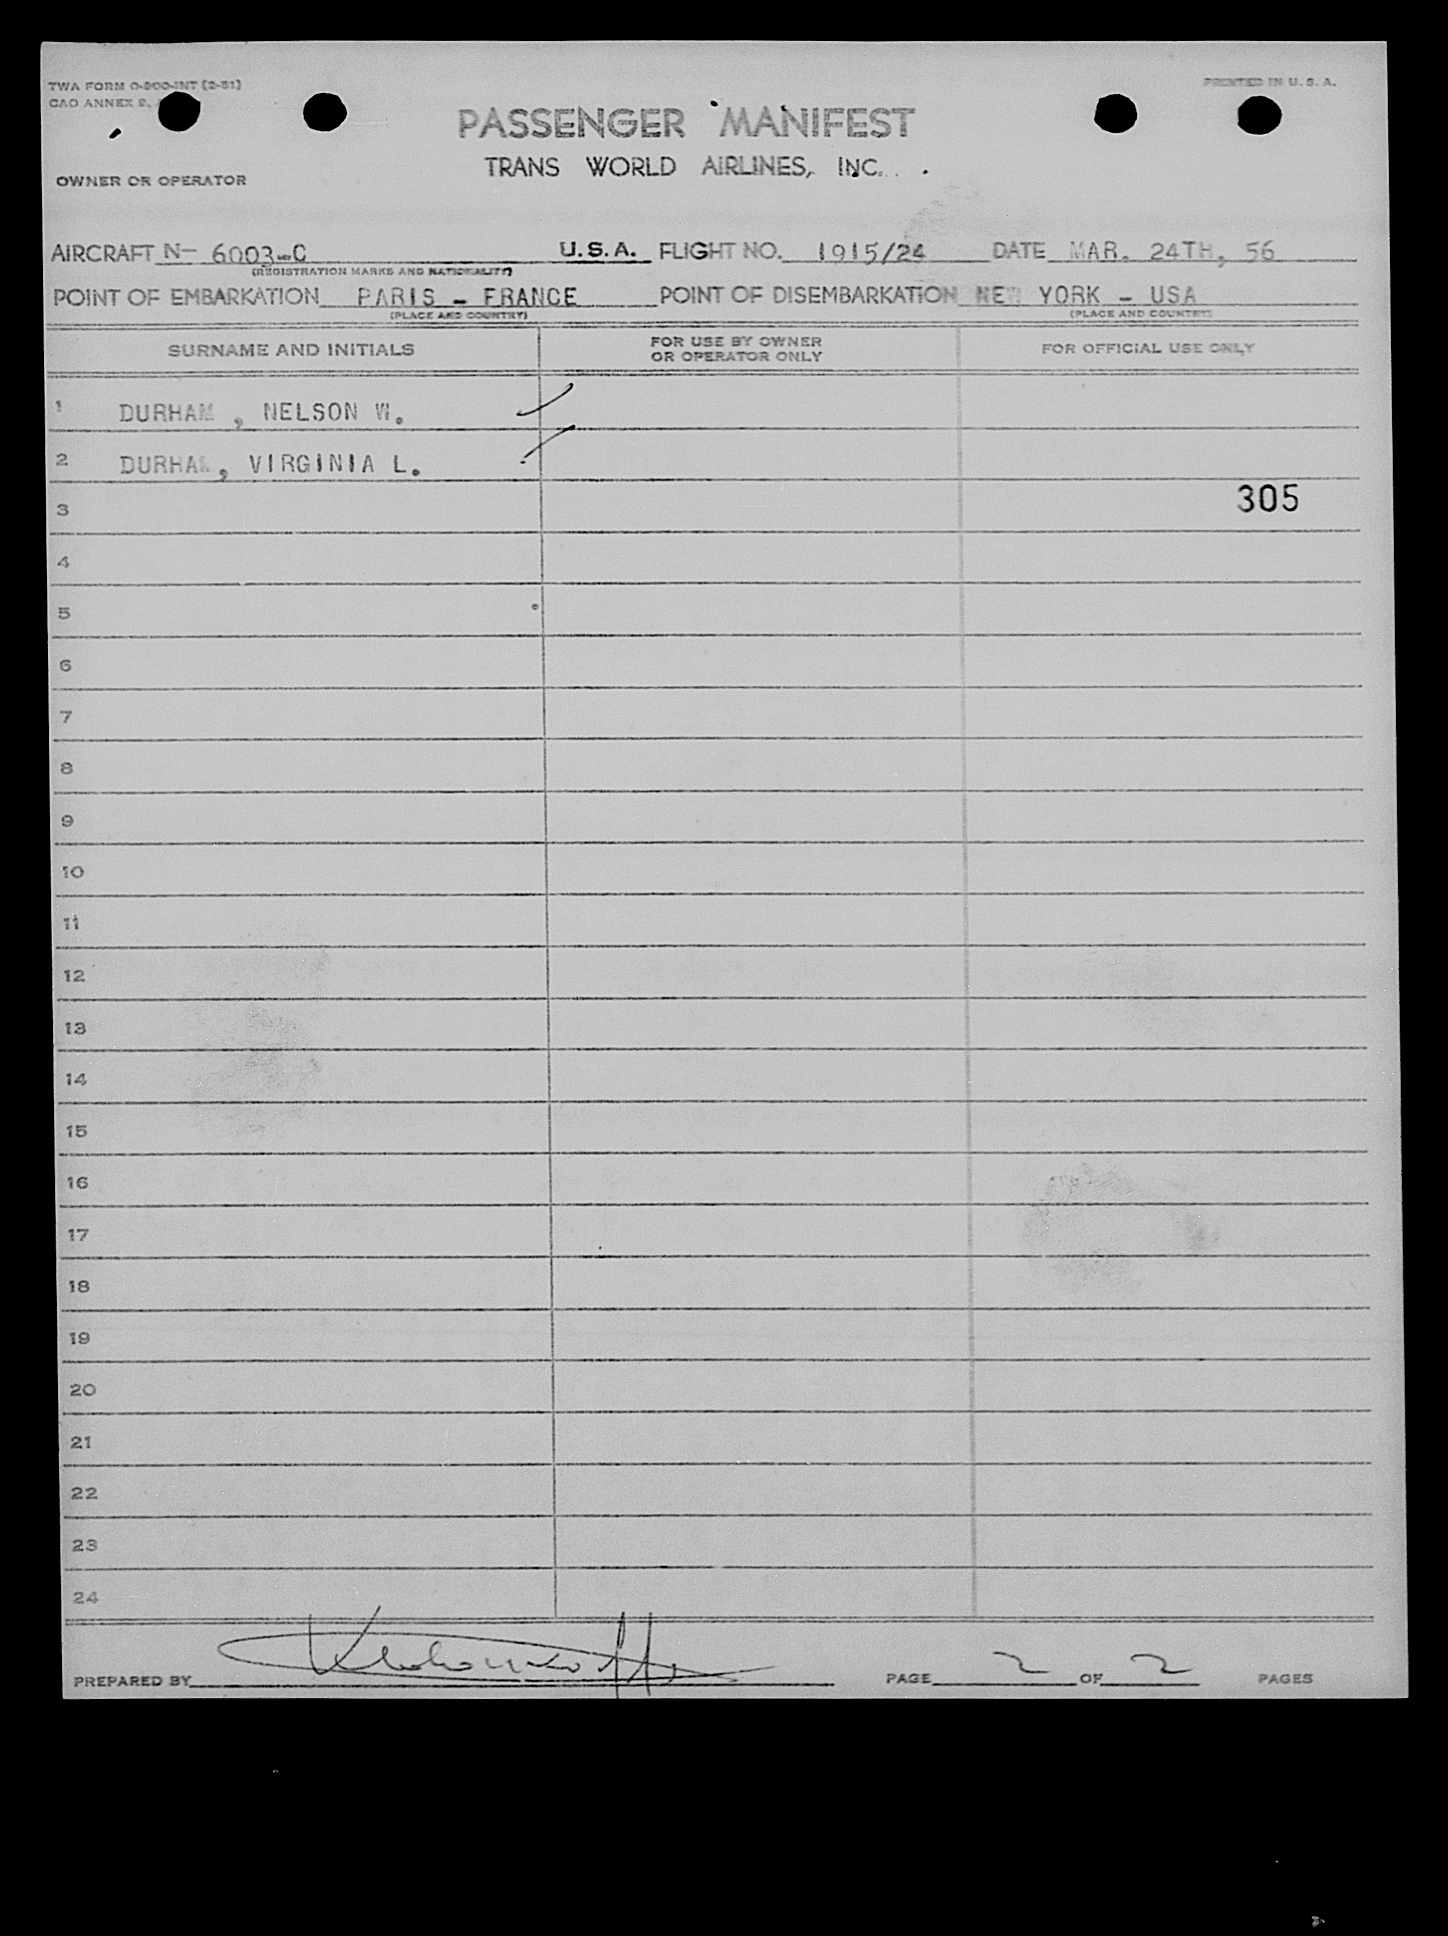 TWA FORM O-800-INT (2-51)
PRINTED IN U. S. A.
CAO ANNEX 9,
PASSENGER MANIFEST
TRANS WORLD AIRLINES, INC.
OWNER OR OPERATOR
AIRCRAFT N- 6003-C U.S.A. FLIGHT NO. 1915/24 DATE MAR. 24TH, 56
(REGISTRATION MARKS AND NATIONALITY)
POINT OF EMBARKATION PARIS - FRANCE POINT OF DISEMBARKATION NEW YORK - USA
(PLACE AND COUNTRY) (PLACE AND COUNTRY)
SURNAME AND INITIALS FOR USE BY OWNER OR OPERATOR ONLY FOR OFFICIAL USE ONLY
1 DURHAM , NELSON W.
2 DURHAM, VIRGINIA L.
3 305
4
5
6
7
8
9
10
11
12
13
14
15
16
17
18
19
20
21
22
23
24
PREPARED BY PAGE 2 OF 2 PAGES